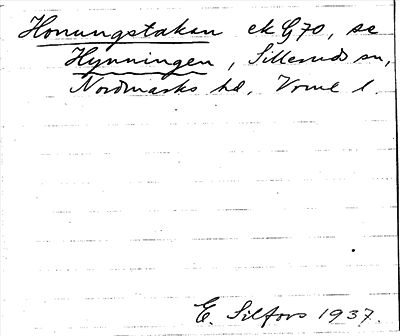 Honungstakan ek G70, se
Hynningen, Sillerud sn,
Nordmarks hd. Vrml l.
E. Silfors 1937.